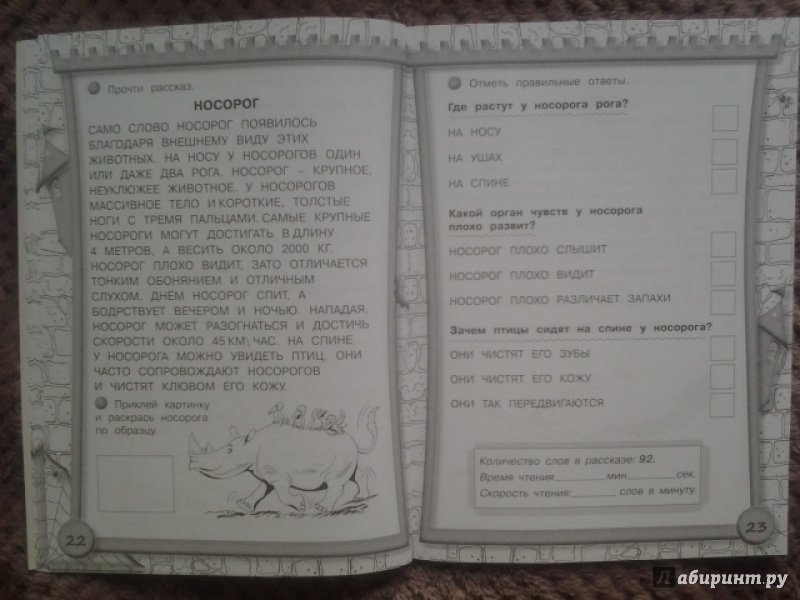 Прочти рассказ.
НОСОРОГ
САМО СЛОВО НОСОРОГ ПОЯВИЛОСЬ
БЛАГОДАРЯ ВНЕШНЕМУ ВИДУ ЭТИХ
ЖИВОТНЫХ. НА НОСУ У НОСОРОГОВ ОДИН
ИЛИ ДАЖЕ ДВА РОГА. НОСОРОГ – КРУПНОЕ,
НЕУКЛЮЖЕЕ ЖИВОТНОЕ. У НОСОРОГОВ
МАССИВНОЕ ТЕЛО И КОРОТКИЕ, ТОЛСТЫЕ
НОГИ С ТРЕМЯ ПАЛЬЦАМИ. САМЫЕ КРУПНЫЕ
НОСОРОГИ МОГУТ ДОСТИГАТЬ В ДЛИНУ
4 МЕТРОВ, А ВЕСИТЬ ОКОЛО 2000 КГ.
НОСОРОГ ПЛОХО ВИДИТ, ЗАТО ОТЛИЧАЕТСЯ
ТОНКИМ ОБОНЯНИЕМ И ОТЛИЧНЫМ
СЛУХОМ. ДНЁМ НОСОРОГ СПИТ, А
БОДРСТВУЕТ ВЕЧЕРОМ И НОЧЬЮ. НАПАДАЯ,
НОСОРОГ МОЖЕТ РАЗОГНАТЬСЯ И ДОСТИЧЬ
СКОРОСТИ ОКОЛО 45 КМ\ ЧАС. НА СПИНЕ
У НОСОРОГА МОЖНО УВИДЕТЬ ПТИЦ. ОНИ
ЧАСТО СОПРОВОЖДАЮТ НОСОРОГОВ
И ЧИСТЯТ КЛЮВОМ ЕГО КОЖУ.
Приклей картинку
и раскрась носорога
по образцу.
22
Отметь правильные ответы.
Где растут у носорога рога?
НА НОСУ
НА УШАХ
НА СПИНЕ
Какой орган чувств у носорога
плохо развит?
НОСОРОГ ПЛОХО СЛЫШИТ
НОСОРОГ ПЛОХО ВИДИТ
НОСОРОГ ПЛОХО РАЗЛИЧАЕТ ЗАПАХИ
Зачем птицы сидят на спине у носорога?
ОНИ ЧИСТЯТ ЕГО ЗУБЫ
ОНИ ЧИСТЯТ ЕГО КОЖУ
ОНИ ТАК ПЕРЕДВИГАЮТСЯ
Количество слов в рассказе: 92.
Время чтения________ мин________сек.
Скорость чтения:_______ слов в минуту.
23
Лабиринт.ру